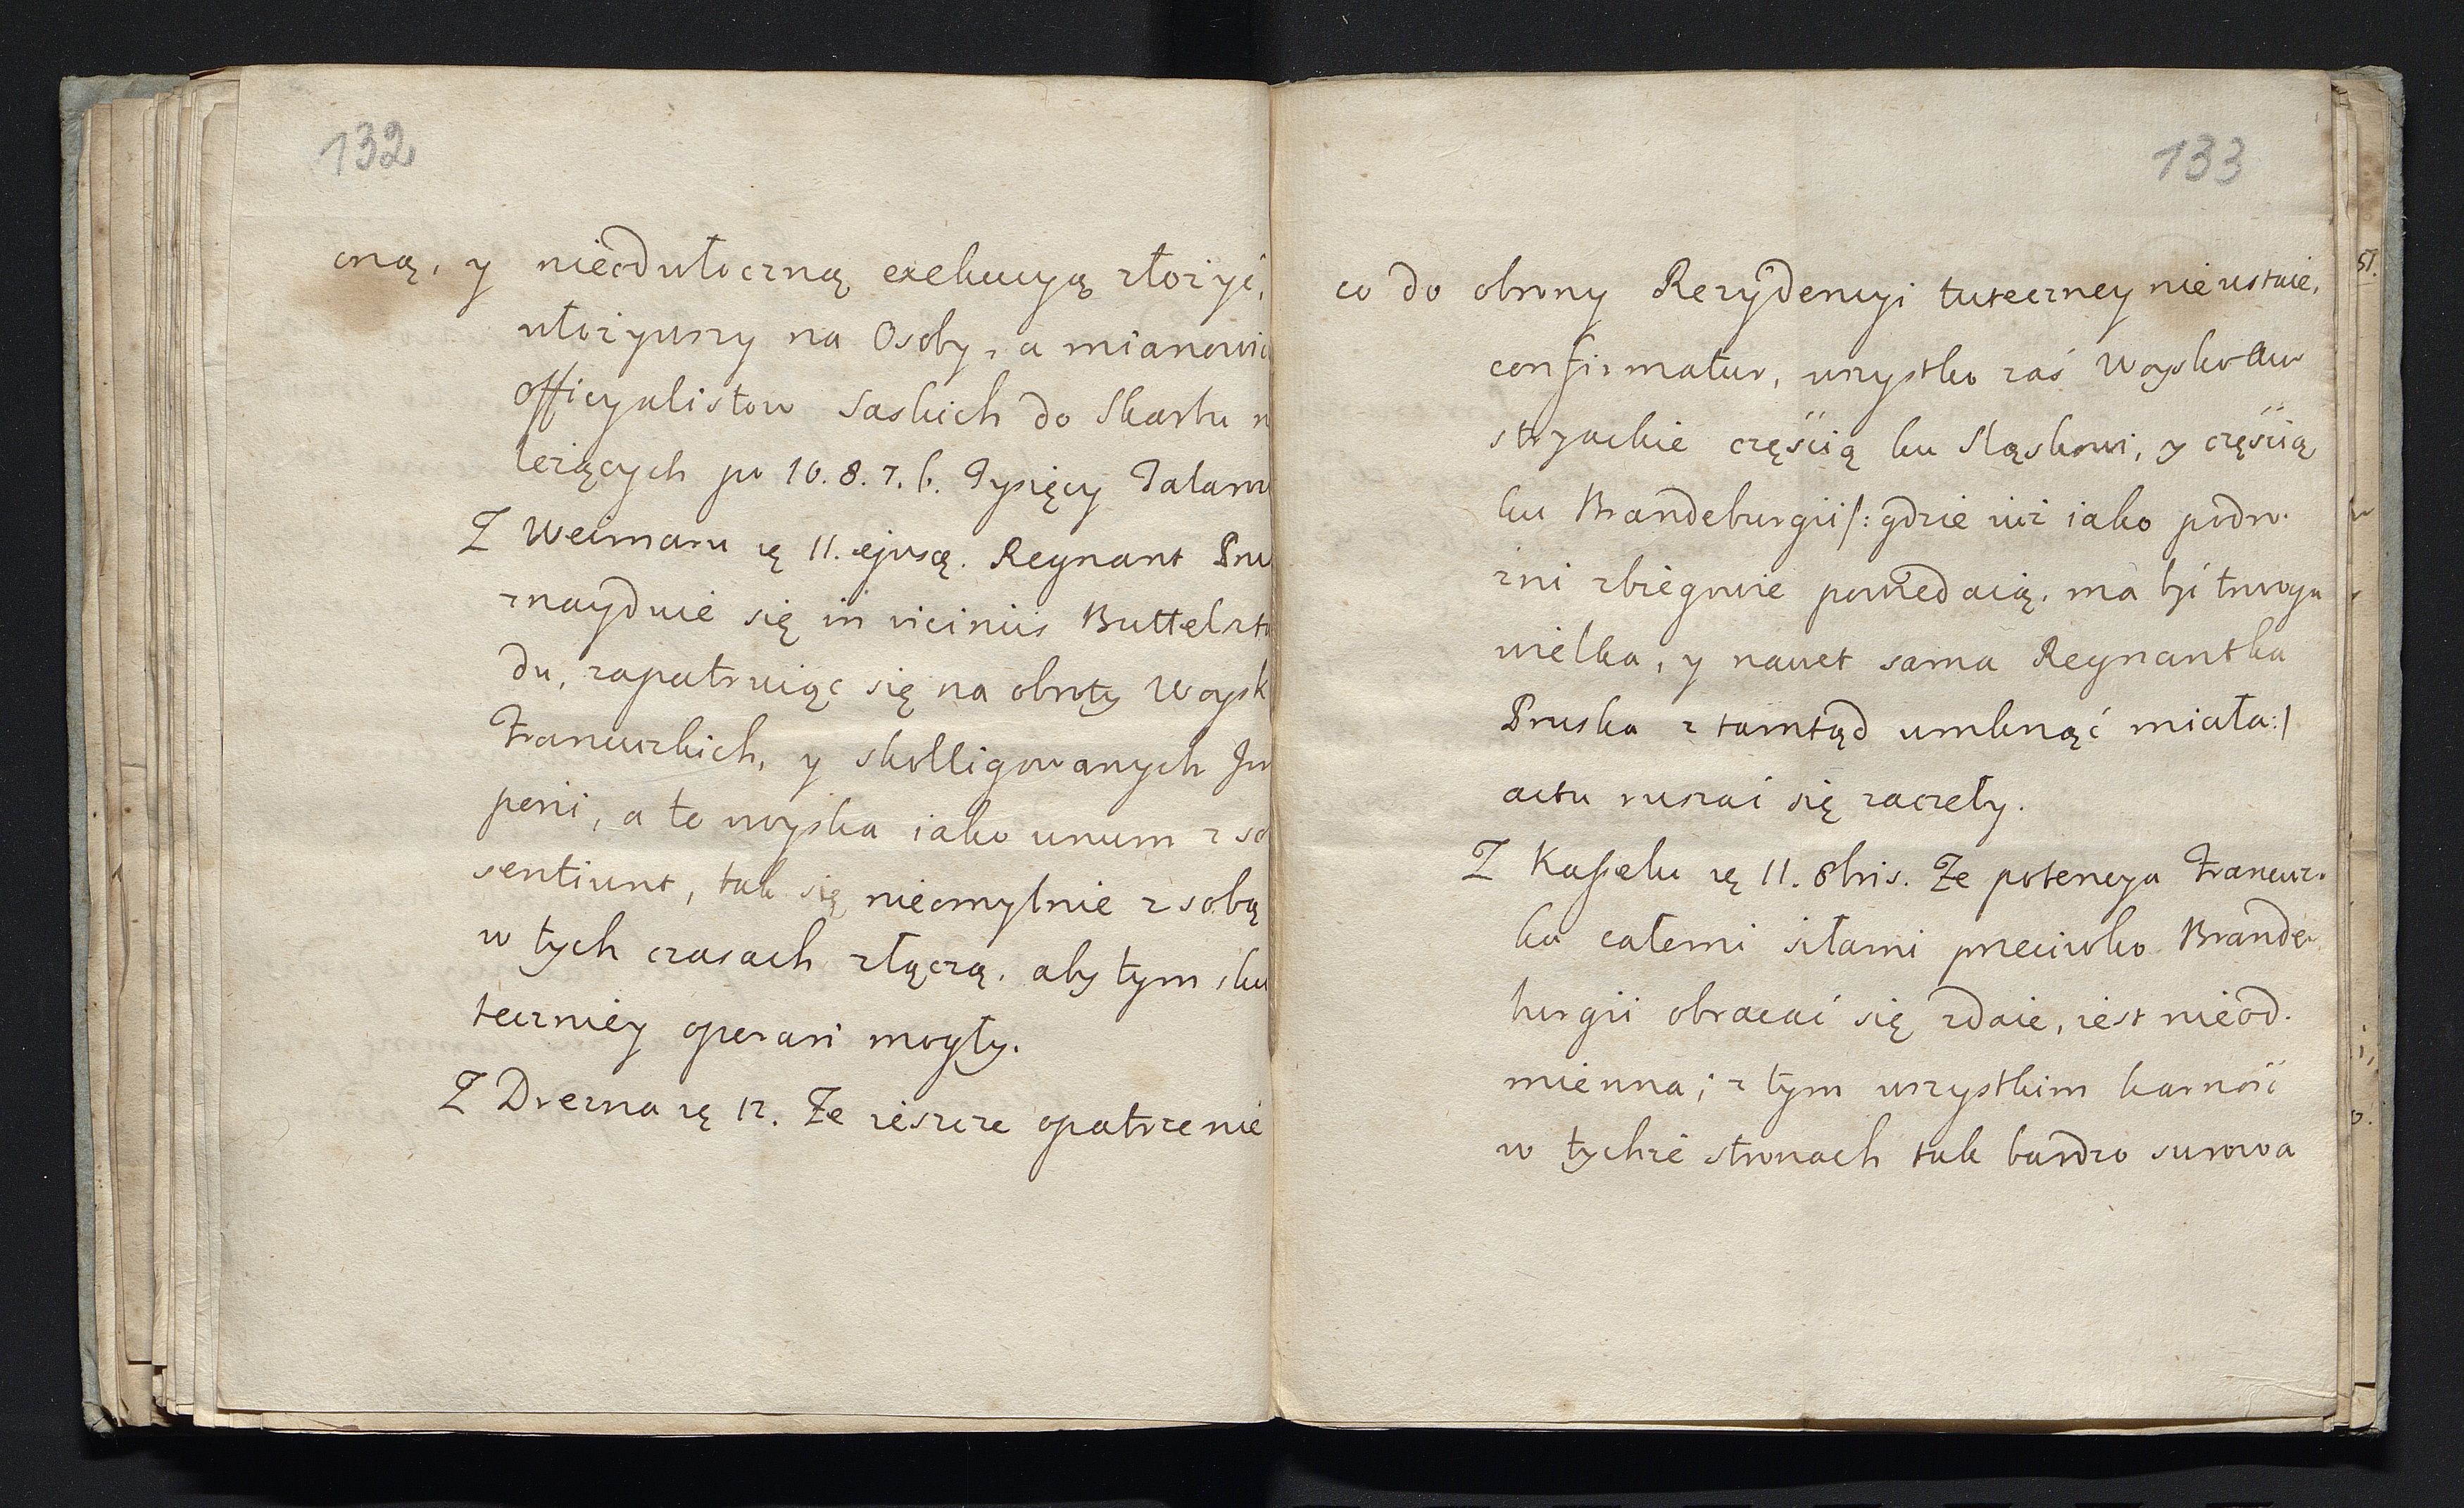 132
czną, y nieodwłoczną exekucyą złożyć,
włożywszy na Osoby, a mianowi
Officyalistow Saskich do Skarbu n
leżących po 10. 8. 7. 6. Tysięcy Talarow
Z Weimaru ię 11. ejusq. Regnant Pru
znayduie się in viciniis Buttelszta
du, zapatruiąc się na obroty Woysk
Francuzkich, y skolligowanych Im
perii, a te woyska iako unum z so
sentiunt, tak się nieomylnie z sobą
w tych czasach złączą, aby tym sku
teczniey operari mogły.
Z Drezna ię 12. Ze ieszcze opatrzenie
133
co do obrony Rezydencyi tuteczney nie ustaie,
confirmatur, wszystko zaś Woysko Au
stryackie częścią ku Sląskowi, y częścią
ku Brandeburgii /: gdzie iuż iako podro.
żni zbiegowie powiedaią, ma być trwoga
wielka, y nawet sama Regnantka
Pruska z tamtąd umknąć miała :/
actu ruszać się zaczeły.
Z Kasselu ię 11. 8bris. Ze potencya Francuz.
ka całemi siłami przeciwko Brande
burgii obracać się zdaie, iest nieod.
mienna; z tym wszystkim karność
w tychże stronach tak bardzo surowa